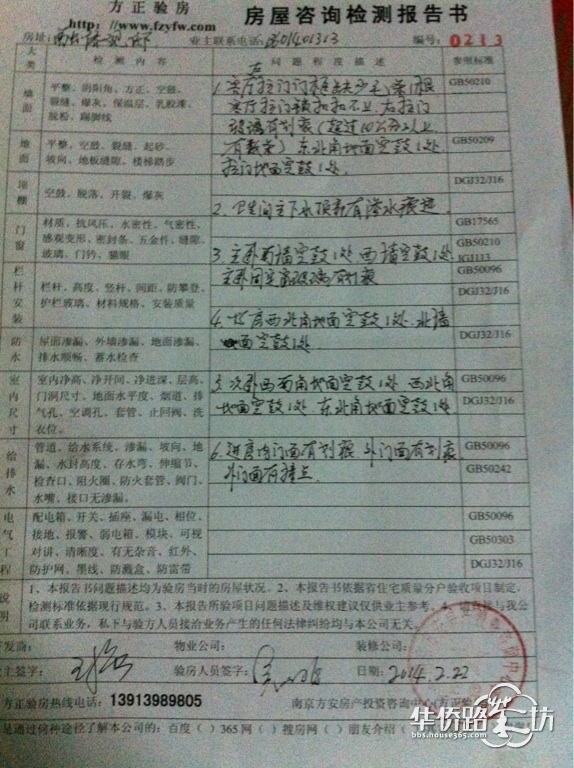 方正验房
http: //www.fzyfw.com
房屋咨询检测报告书
房址:
业主联系电话:
编号: 0213
大类
检测内容
问题程度描述
参照标准
墙面
平整、阴阳角、方正、空鼓、
裂缝、爆灰、保温层、乳胶漆、
脱粉、踢脚线
1. 客厅拉门门
GB50210
玻璃有划痕(超过10公分以上
地面
平整、空鼓、裂缝、起砂、
坡向、地板缝隙、楼梯踏步
有数条) 东北角地面空鼓1处
拉门地面空鼓1处
GB50209
DGJ32/J16
顶棚
空鼓、脱落、开裂、爆灰
2. 卫生间主下水
有渗水痕迹
门窗
材质、抗风压、水密性、气密性、
感观变形、密封条、五金件、缝隙、
玻璃、门钤、猫眼
3. 主卧南墙空鼓1处 西墙空鼓1处
GB17565
GB50210
JGJ113
栏杆安装
栏杆、高度、竖杆、间距、防攀登、
护栏玻璃、材料规格、安装质量
玻璃有划痕
GB50096
DGJ32/J16
防水
屋面渗漏、外墙渗漏、地面渗漏、
排水顺畅、蓄水检查
4.
房西北角地面空鼓1处 北墙
面空鼓1处
DGJ32/J16
室内尺寸
室内净高、净开间、净进深、层高、
门洞尺寸、地面水平度、烟道、排
气孔、空调孔、套管、止回阀、洗
衣位。
5. 次卧西南角地面空鼓1处 西北角
地面空鼓1处 东北角地面空鼓1处
GB50096
DGJ32/J16
给排水
管道、给水系统、渗漏、坡向、地
漏、水封高度、存水弯、伸缩节、
检查口、阻火圈、防火套管、阀门、
水嘴，接口无渗漏。
6. 进户内门面有划痕 外门面有划痕
外门面有撞点
GB50096
GB50242
电气工程
配电箱、开关、插座、漏电、相位、
接地、报警、弱电箱、模块、可视
对讲、清晰度、有无杂音、红外、
防护网、墨线、防溅盒、防雷带
GB50096
GB50303
DGJ32/J16
说明
1、本报告书问题描述均为验房当时的房屋状况。2、本报告书依据省住宅质量分户验收项目制定，
检测标准依据现行规范。3、本报告所验项目问题描述及维权建议仅供业主参考。4、请直接与我公
司联系业务，私下与验方人员接洽业务产生的任何法律纠纷均与本公司无关。
发商:
物业公司:
装修公司:
主签字:
验房人员签字:
日期: 2014.2.22
方正验房热线电话: 13913989805
南京方安房产投资咨询中心方正验
是通过何种途径了解本公司的: 百度( ) 365网( ) 搜房网( ) 朋友介绍(
华侨路茶坊
bbs.house365.com